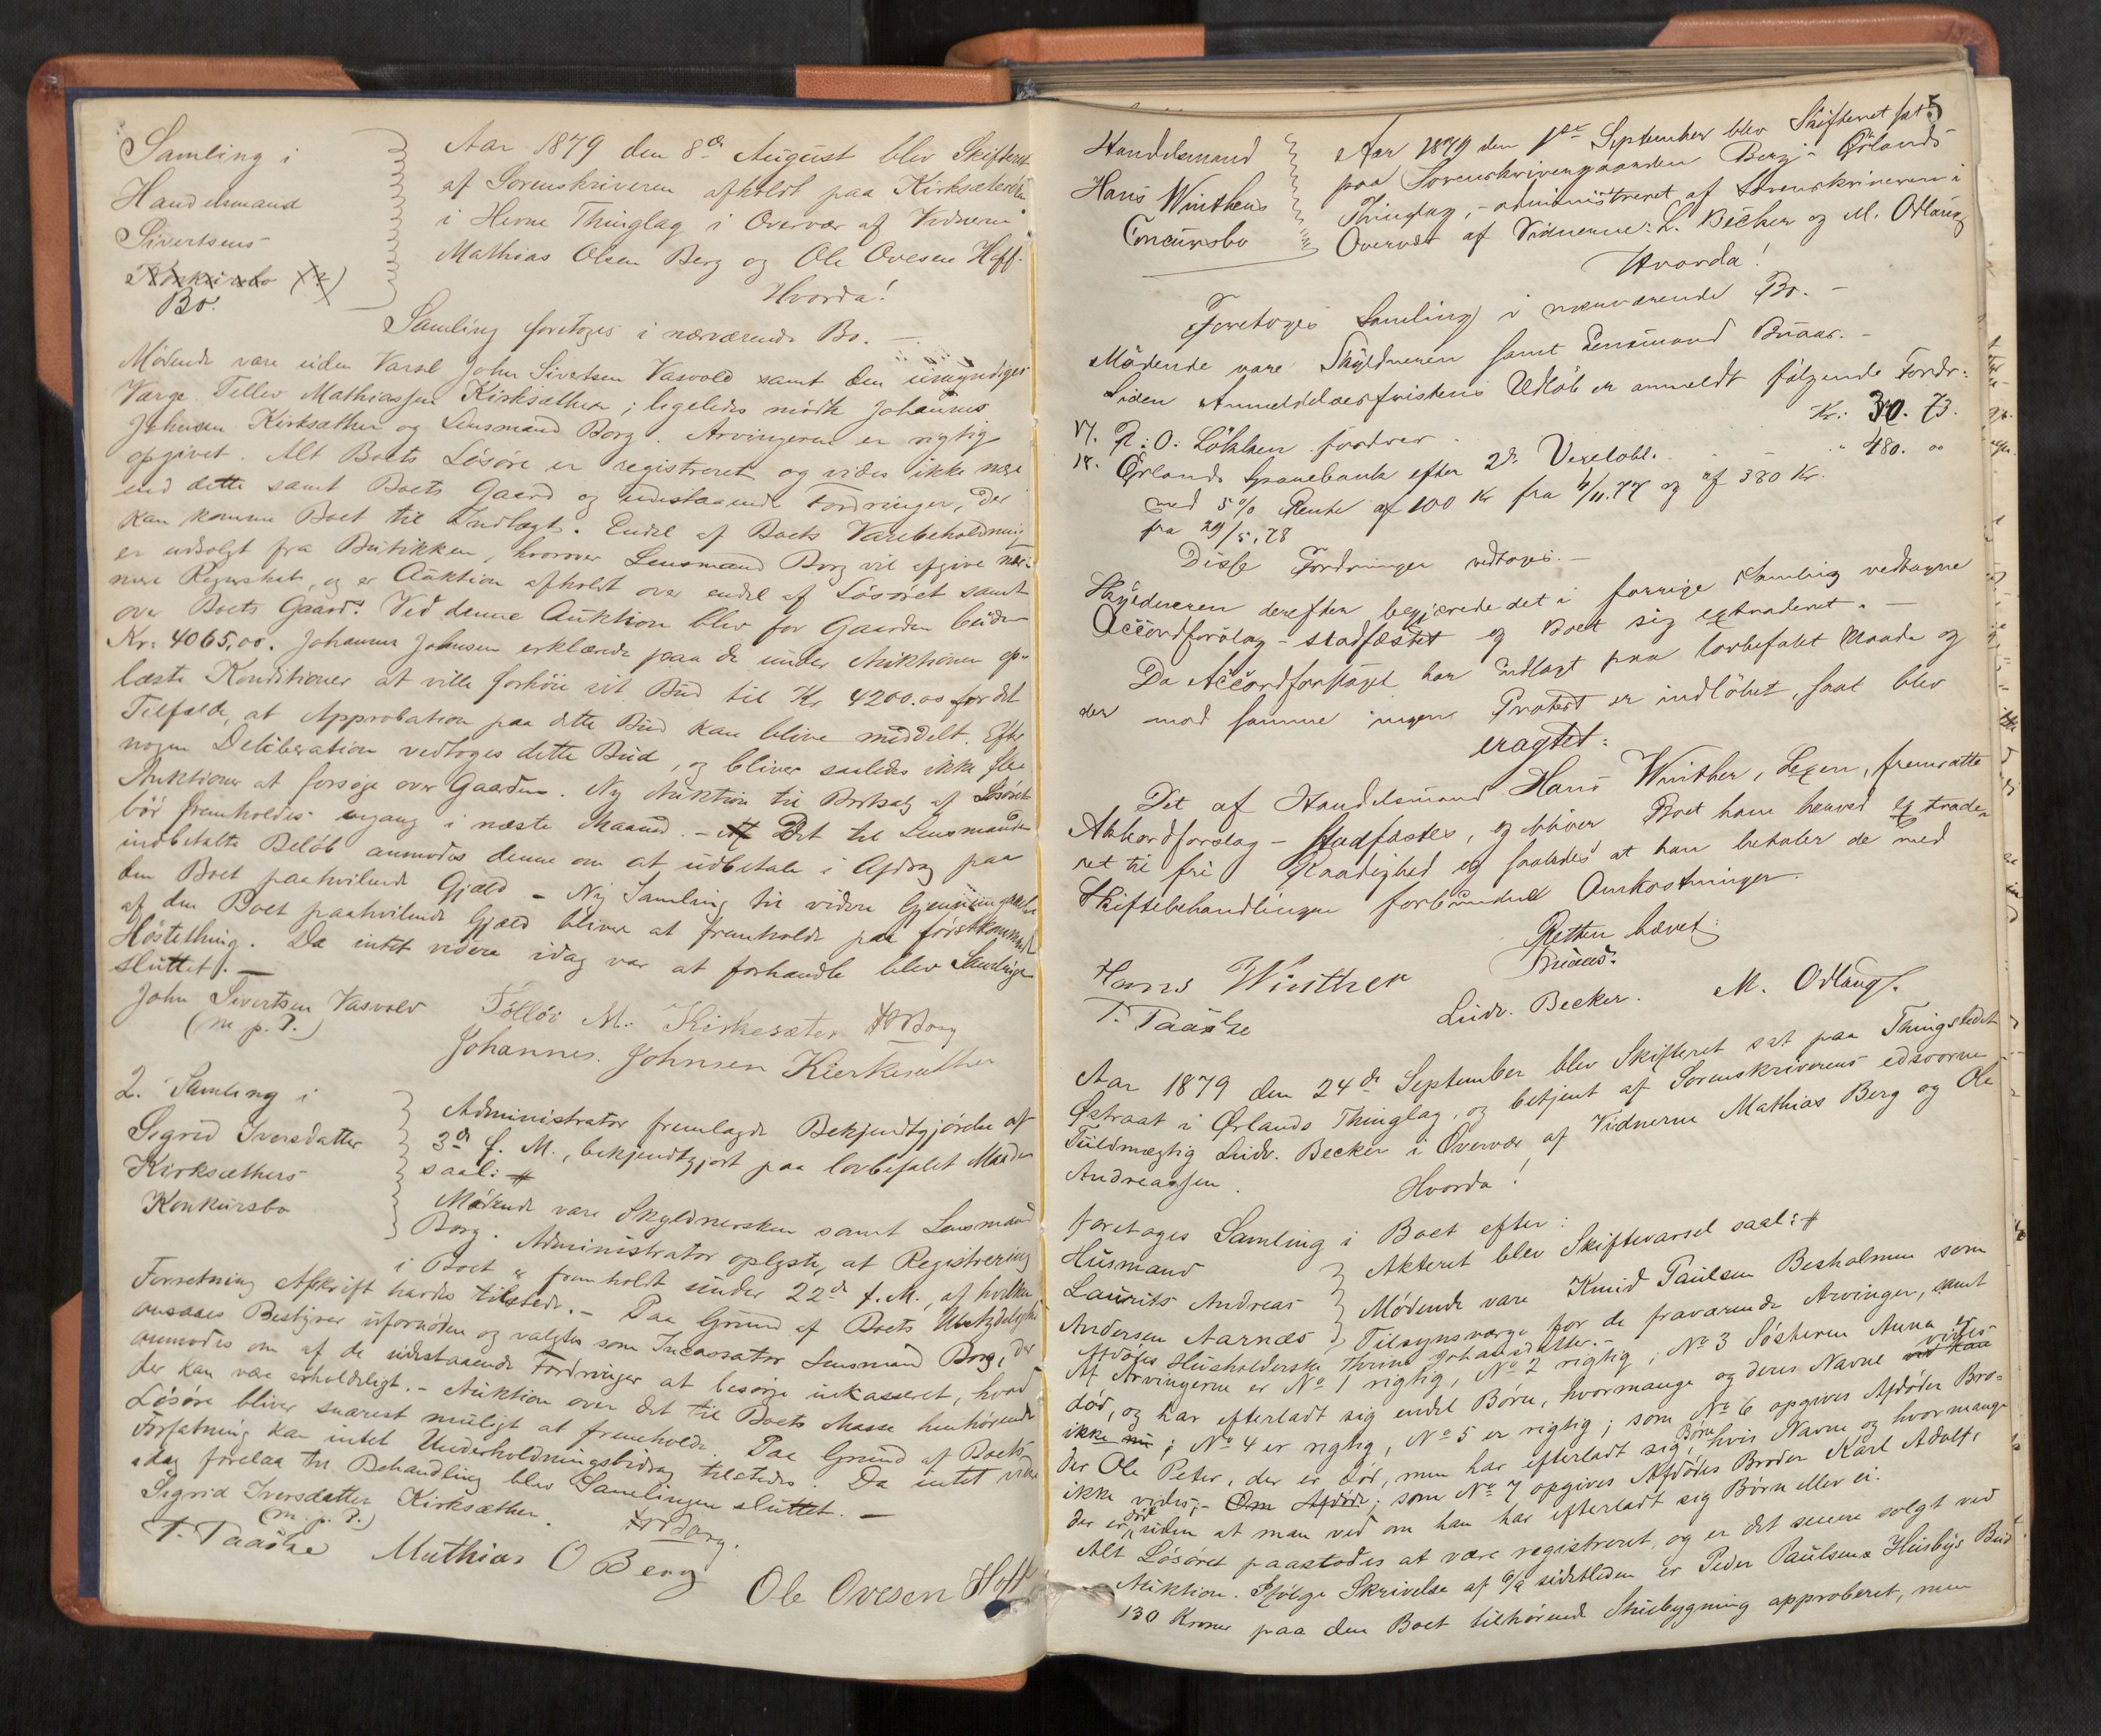 Samling i
Handelsmand
Sivertsens
Bo.
Aar 1879 den 8de August blev Skifteret
af Sorenskriveren afholdt paa Kirksæterøren
i Hevne Thinglag i Overvær af Vidnerne
Mathias Olsen Berg og Ole Ovesen Hoff.
Hvorda!
Samling foretoges i nærværende Bo. —
Mødende vare uden Varsel John Sivertsen Vasvold samt den umyndiges
Værge Tellev Mathiassen Kirksæther; ligeledes mødte Johannes
Johnsen Kirksæther og Lensmand Borg. Arvingerne er rigtig
opgivet. Alt Boets Løsøre er registreret og vides ikke mere
end dette samt Boets Gaard og udestaaende Fordringer, der
kan komme Boet til Indtægt. Endel af Boets Varebeholdning
er udsolgt fra Butikken, hvorover Lensmand Borg vil afgive nær-
mere Regnskab, og er Auktion afholdt over endel af Løsøret samt
over Boets Gaard. Ved denne Auktion blev for Gaarden buden
Kr. 4065,00. Johannes Johnsen erklærede paa de under Auktionen op-
læste Konditioner at ville forhøie sit Bud til Kr 4200.00 for det
Tilfælde, at Approbation paa dette Bud kan blive meddelt. Efter
nogen Deliberation vedtoges dette Bud, og bliver saaledes ikke flere
Auktioner at forsøge over Gaarden. Ny Auktion til Bortsalg af Løsøret
bør fremholdes engang i næste Maaned. — Det til Lensmanden
indbetalte Beløb anmodes denne om at udbetale i Afdrag paa
den Boet paahvilende Gjæld — Ny Samling til videre
af den Boet paahvilende Gjæld bliver at fremholde paa førstkommende
Høstething. Da intet videre idag var at forhandle blev Samlingen
sluttet. —
John Sivertsen Vasvold Tølløv M. Kirkesæter Borg
(m. p. P.) Johannes. Johnsen Kierkesæther
2. Samling i
Sigrid Iversdatter
Kirksæthers
Konkursbo
Administrator fremlagde Bekjendtgjørelse af
3de f. M., bekjendtgjort paa lovbefalet Maade
saal: #
Mødende vare Skyldnersken samt Lensmand
Borg. Administrator oplyste, at Registrering
i Boet er fremholdt under 22de f. M., af hvilken
Forretning Afskrift havdes tilstede. — Paa Grund af Boets Ubetydelighed
ansaaes Bestyrer ufornøden og valgtes som Incassator Lensmand Borg, der
anmodes om af de udestaaende Fordringer at besørge inkasseret, hvad
der kan være erholdeligt. — Auktion over det til Boets Masse henhørende
Løsøre bliver snarest muligt at fremholde. Paa Grund af Boets
Forfatning kan intet Underholdningsbidrag tilstedes. Da intet videre
idag forelaa til Behandling blev Samlingen sluttet. —
Sigrid Iversdatter Kirksæther. Borg.
(m. p. P.)
T. Taaske Mathias O Berg
Ole Ovesen Hoff
5
Handelsmand
Hans Winthers
Concursbo
Aar 1879 den 1ste September blev Skifteret sat
paa Sorenskrivergaarden Berg i Ørlands
Thinglag, – administreret af Sorenskriveren i
Overvær af Vidnerne: L. Becker og M. Odlaug
Hvorda!
Foretoges Samling i nærværende Bo. —
Mødende vare Skyldneren samt Lensmand Bruaas. —
Siden Anmeldelsesfristens Udløb er anmeldt følgende Fordr:
17. P. O. Løkken fordrer Kr. 30. 73.
18. Ørlands Sparebank efter 2de Vexelobl. " 480. 00
med 5 % Rente af 100 Kr fra 4/11.77 og af 380 Kr.
fra 29/5.78
Disse Fordringer vedtoges. —
Skyldneren derefter begjærede det i forrige Samling vedtagne
Accordforslag stadfæstet og Boet sig extraderet. —
Da Accordforslaget har udlagt paa lovbefalet Maade og
der mod samme ingen Protest er indløbet, saa blev
eragtet:
Det af Handelsmand Hans Winther, Lexen, fremsatte
Akkordforslag – stadfæstes, og bliver Boet ham herved extrade-
ret til fri Raadighed og saaledes at han betaler de med
Skiftebehandlingen forbundne Omkostninger.
Retten hævet.
Hans Winther Bruaas.
T. Taaske Ludv. Becker. M. Odlaug.
Aar 1879 den 24de September blev Skifteret sat paa Thingstedet
Østraat i Ørlands Thinglag, og betjent af Sorenskriverens edsvorne
Fuldmægtig Ludv. Becker i Overvær af Vidnerne Mathias Berg og Ole
Andreassen. Hvorda!
foretoges Samling i Boet efter:
Husmand
Laurits Andreas
Andersen Aarnæs
Akteret blev Skiftevarsel saal: #
Mødende vare Knud Paulsen Besholmen som
Tilsynsværge for de fraværende Arvinger, samt
Afdødes Husholderske Thrine Johansdatter. —
Af Arvingerne er No 1 rigtig, No 2 rigtig; No 3 Søsteren Anna er
død, og har efterladt sig endel Børn, hvormange og deres Navne vides
ikke; No 4 er rigtig, No 5 er rigtig; som No 6 opgives Afdødes Bro-
der Ole Peter, der er død, men har efterladt sig Børn, hvis Navne og hvormange
ikke vides; – Om Afdøde; som No 7 opgives Afdødes Broder Karl Adolf,
der er død, uden at man ved om han har efterladt sig Børn eller ei.
Alt Løsøret paastodes at være registreret, og er det senere solgt ved
Auktion. Ifølge Skrivelse af 6/9 sidstleden er Peder Paulsens Husbys Bud
130 Kroner paa den Boet tilhørende Stuebygning approberet, men